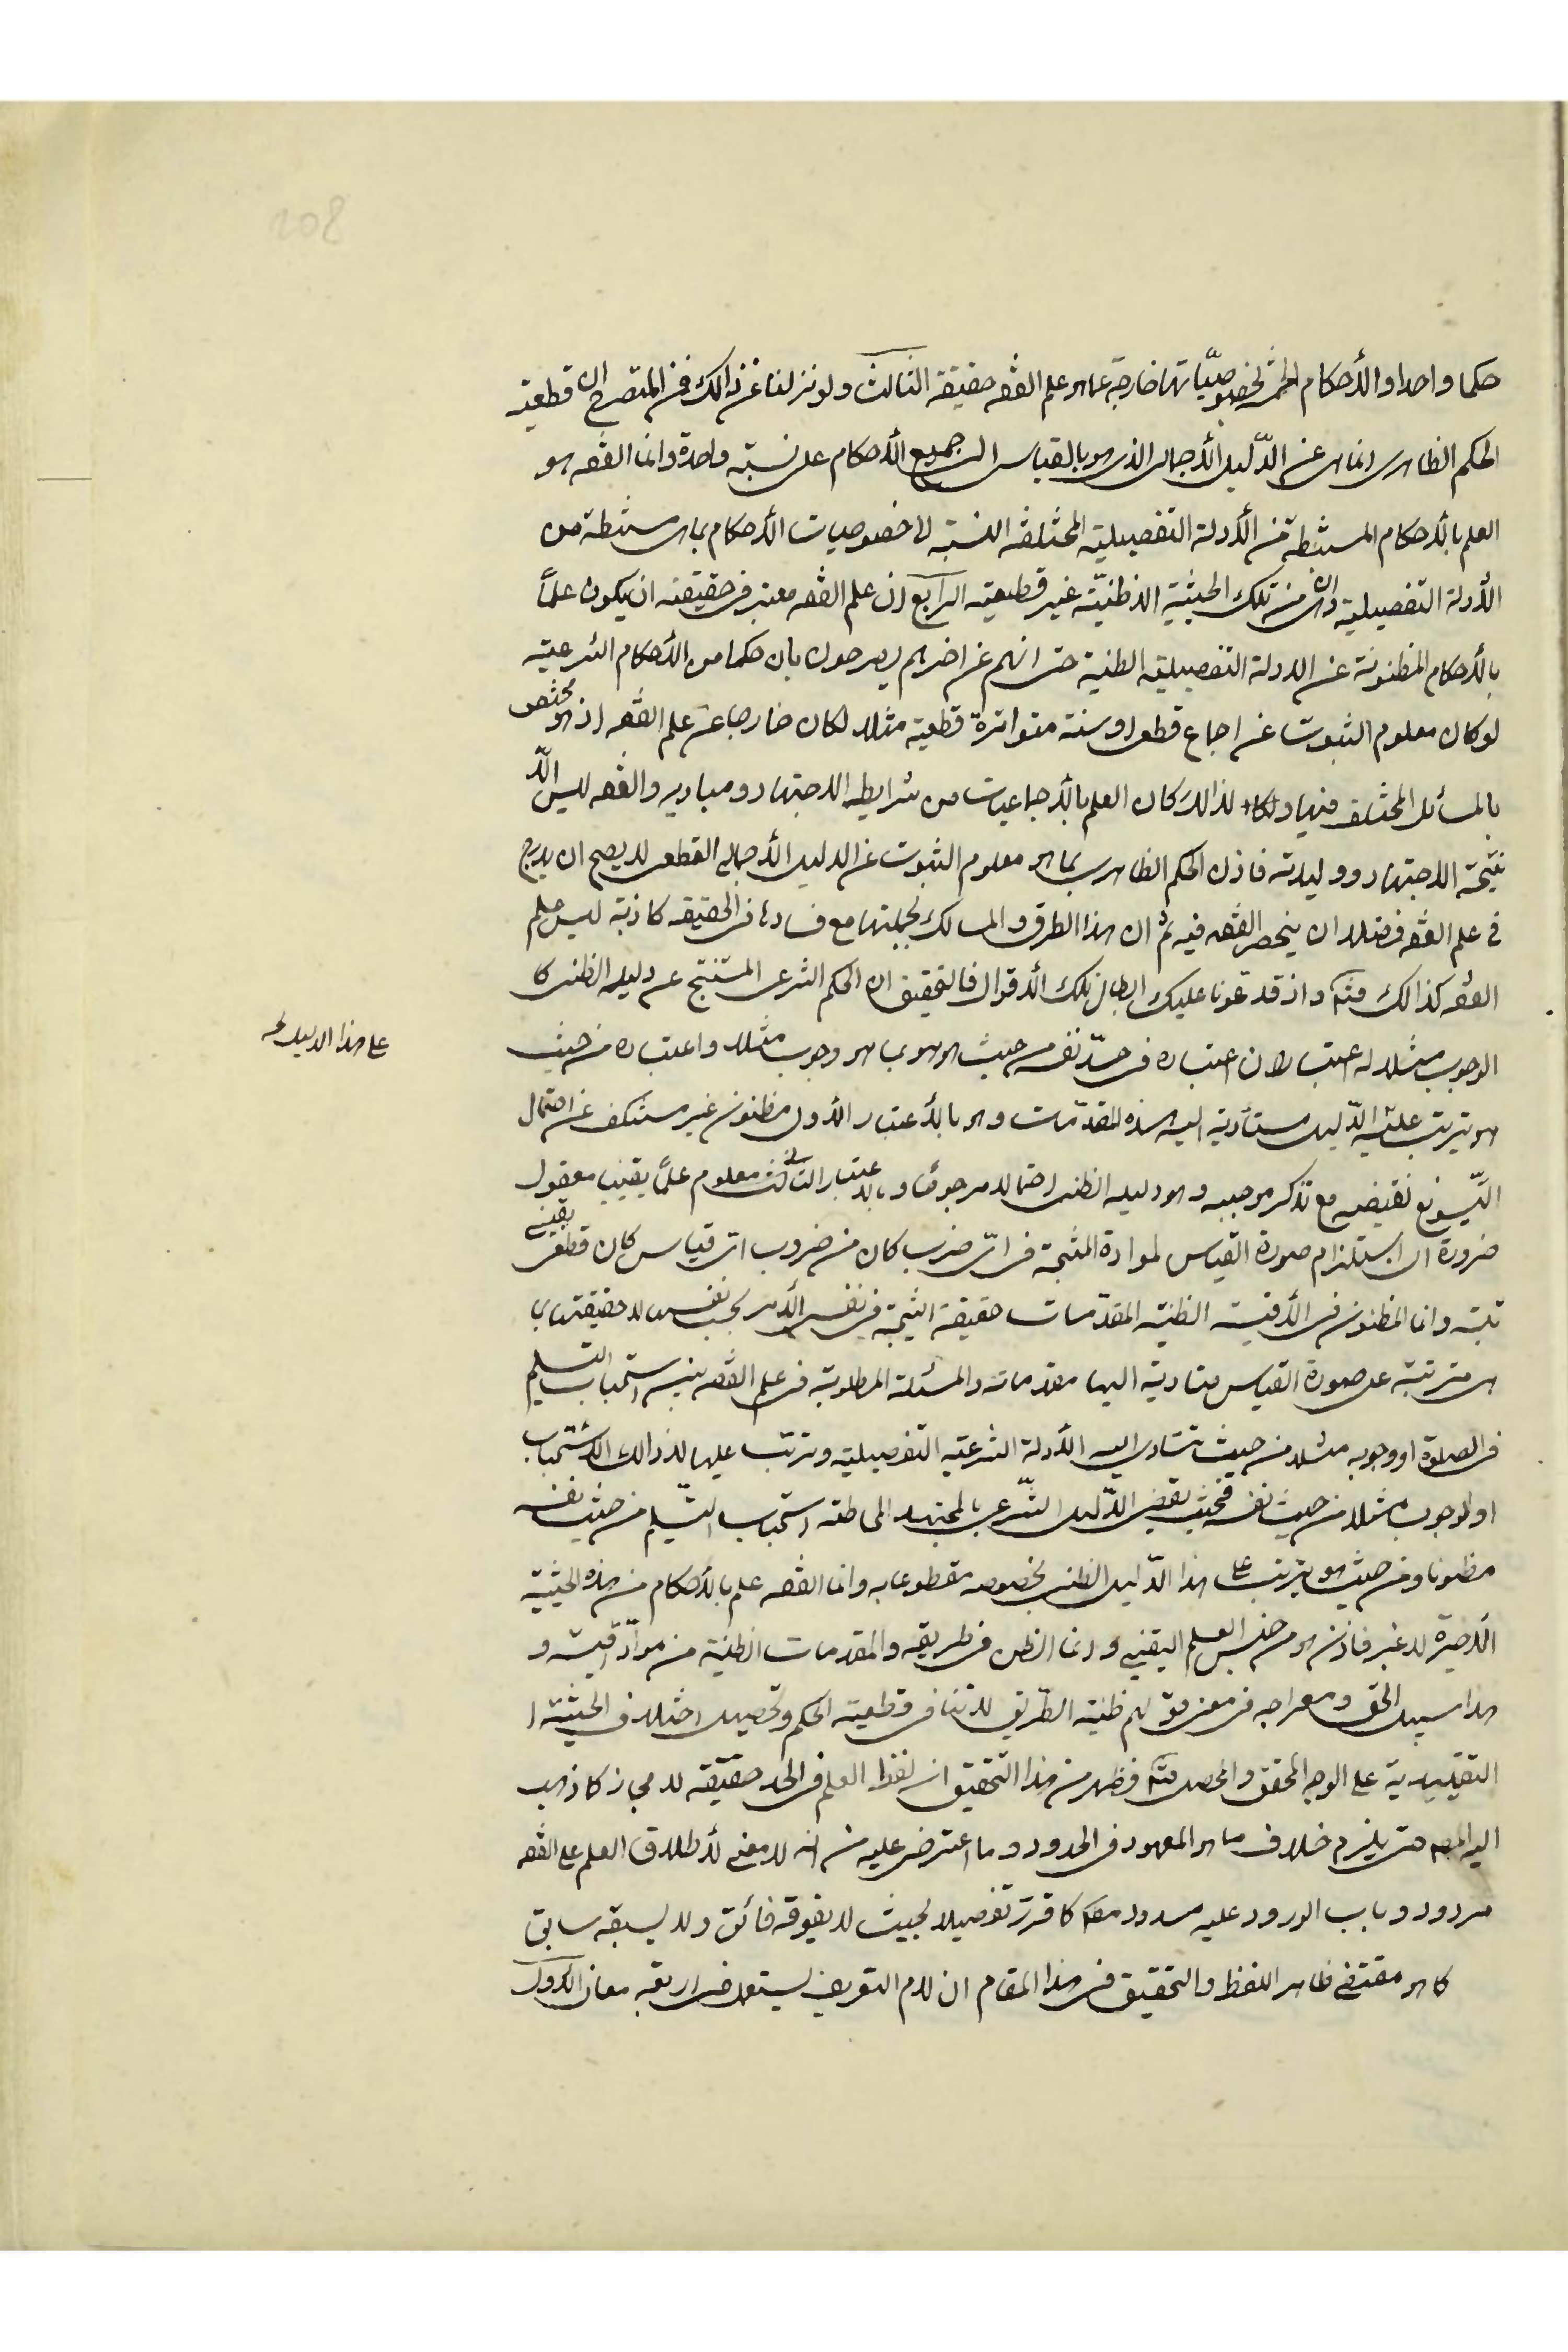 حكما واحدا والأحكام الخمسة بخصوصيّاتها خارجة عما هو علم الفقه حقيقة الثالث ولو نزلنا عن ذالك فمن المتصرح ان قطعية
الحكم الظاهرى انما هى عن الدّليل الأجمالى الذى هو بالقياس الى جميع الأحكام على نسبة واحدة وانما الفقه هو
العلم بالأحكام المستنبطة من الأدلة التفصيلية المختلفة النسبة الى خصوصيات الأحكام بما هى مستنبطة من
الأدلة التفصيلية وان من تلك الحيثية الا ظنيّة غير قطعية الرابع ان علم الفقه معتبر فى حقيقته ان يكون علماً
بالأحكام المظنونة عن الادلة التفصيلية الظنية حتى انهم عن اخرهم يصرحون بان حكما من الأحكام الشرعية
لو كان معلوم الثبوت عن اجماع قطعى او سنة متواترة قطعية مثلا لكان خارجا عن علم الفقه اذ هو مختص
بالمسائل المختلف فيها ولذالك كان العلم بالأجماعيات من شرايط الاجتهاد ومباديه والفقه ليس الّا
نتيجة الاجتهاد ووليدته فاذن الحكم الظاهرى بما هو معلوم الثبوت عن الدليل الأجمالى القطعى لا يصح ان يدرج
فى علم الفقه فضلا ان ينحصر الفقه فيه ثم ان هذا الطرق والمسالك بجملتها مع فسادها فى الحقيقة كاذبة ليس علم
الفقه كذالك منه واذ قد تلونا عليك ابطال تلك الأقوال فالتحقيق ان الحكم الشرعى المستنتج عن دليله الظنى كا
الوجوب مثلا له اعتباران اعتباره فى حدّ نفسه من حيث هو هو بما هو وجوب مثلا واعتباره من حيث
هو يترتب على الدّليل مستأدية اليه هذه المقدّمات وهو بالأعتبار الأول مظنون غير مستنكف عن احتمال
نقيضه مع تذكر موجبه وهو دليله الظنى احتمالا مرجوحاً وبالاعتبار الثانى معلوم علماً يقينيا معقول
ضرورة ان استلزام صورة القياس لموادة المنتجة فى اىّ ضرب كان من ضروب اىّ قياس كان قطعى يقينى
البتة وانما المظنون فى الأقيسة الظنية المقدّمات حقيقة النتيجة فى نفس الأمر بحسب نفسها لا حقيقتها بما
هى مترتبة على صورة القياس متادية اليها مقدماته والمسئلة المطلوبة فى علم الفقه نسبة استحباب التسليم
فى الصلوة او وجوبه مثلا من حيث تتادى اليه الأدلة الشرعية التفصيلية وترتب عليها لا ذالك الأستحباب
او الوجوب مثلا من حيث نفسه فحيث يفضى الدّليل الشّرعى بالمجتهد الى ظنه استحباب التسليم من حيث نفسه
مظنونا ومن حيث هو يترتب على هذا الدّليل الظنى بخصوصه مقطوعا به وانما الفقه علم بالأحكام من هذه الحيثية
الأخيرة لا غير فاذن هو من جنس العلم اليقينى وانما الظن فى طريقه والمقدمات الظنية من موادّ اقيسته و
هذا سبيل الحق ومعراجه فى معنى قولهم ظنية الطّريق لا تنافى قطعية الحكم وتحصيل اختلاف الحيثية ا
التقييدية على الوجه المحقق والمحصل منه فظهر من هذا التحقيق ان لفظ العلم فى الحد حقيقة لا مجاز كما ذهب
اليه المص حتى يلزم خلاف ما هو المعهود فى الحدود وما اعترض عليه من انه لا معنى لأطلاق العلم على الفقه
مردود وباب الورود عليه مسدود منه كما قررت تفصيلا بحيث لا يفوقه فائق ولا يسبقه سابق
كما هو مقتضى ظاهر اللفظ والتحقيق فى هذا المقام ان لام التعريف يستعمل فى اربعة معان الأول
على هذا الدليل